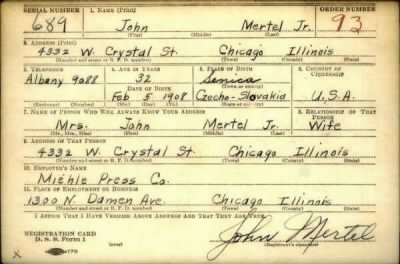 SERIAL NUMBER 1. NAME (Print) ORDER NUMBER
689 John Mertel Jr. 93
(First) (Middle) (Last)
2. ADDRESS (Print)
4332 W. Crystal St. Chicago Illinois
(Number and street or R. F. D. number) (Town) (County) (State)
3. TELEPHONE 4. AGE IN YEARS 5. PLACE OF BIRTH 6. COUNTRY OF CITIZENSHIP
Albany 9088 32 Senica
DATE OF BIRTH (Town or county)
Feb 5 1908 Czecho-Slovakia U.S.A.
(Exchange) (Number) (Mo.) (Day) (Yr.) (State or country)
7. NAME OF PERSON WHO WILL ALWAYS KNOW YOUR ADDRESS 8. RELATIONSHIP OF THAT PERSON
Mrs. John Mertel Jr. Wife
(Mr., Mrs., Miss) (First) (Middle) (Last)
9. ADDRESS OF THAT PERSON
4332 W. Crystal St. Chicago Illinois
(Number and street or R. F. D. number) (Town) (County) (State)
10. EMPLOYER'S NAME
Miehle Press Co.
11. PLACE OF EMPLOYMENT OR BUSINESS
1300 N. Damen Ave. Chicago Illinois
(Number and street or R. F. D. number) (Town) (County) (State)
I AFFIRM THAT I HAVE VERIFIED ABOVE ANSWERS AND THAT THEY ARE TRUE.
REGISTRATION CARD
D. S. S. Form 1 (over) John Mertel
(Registrant's signature)